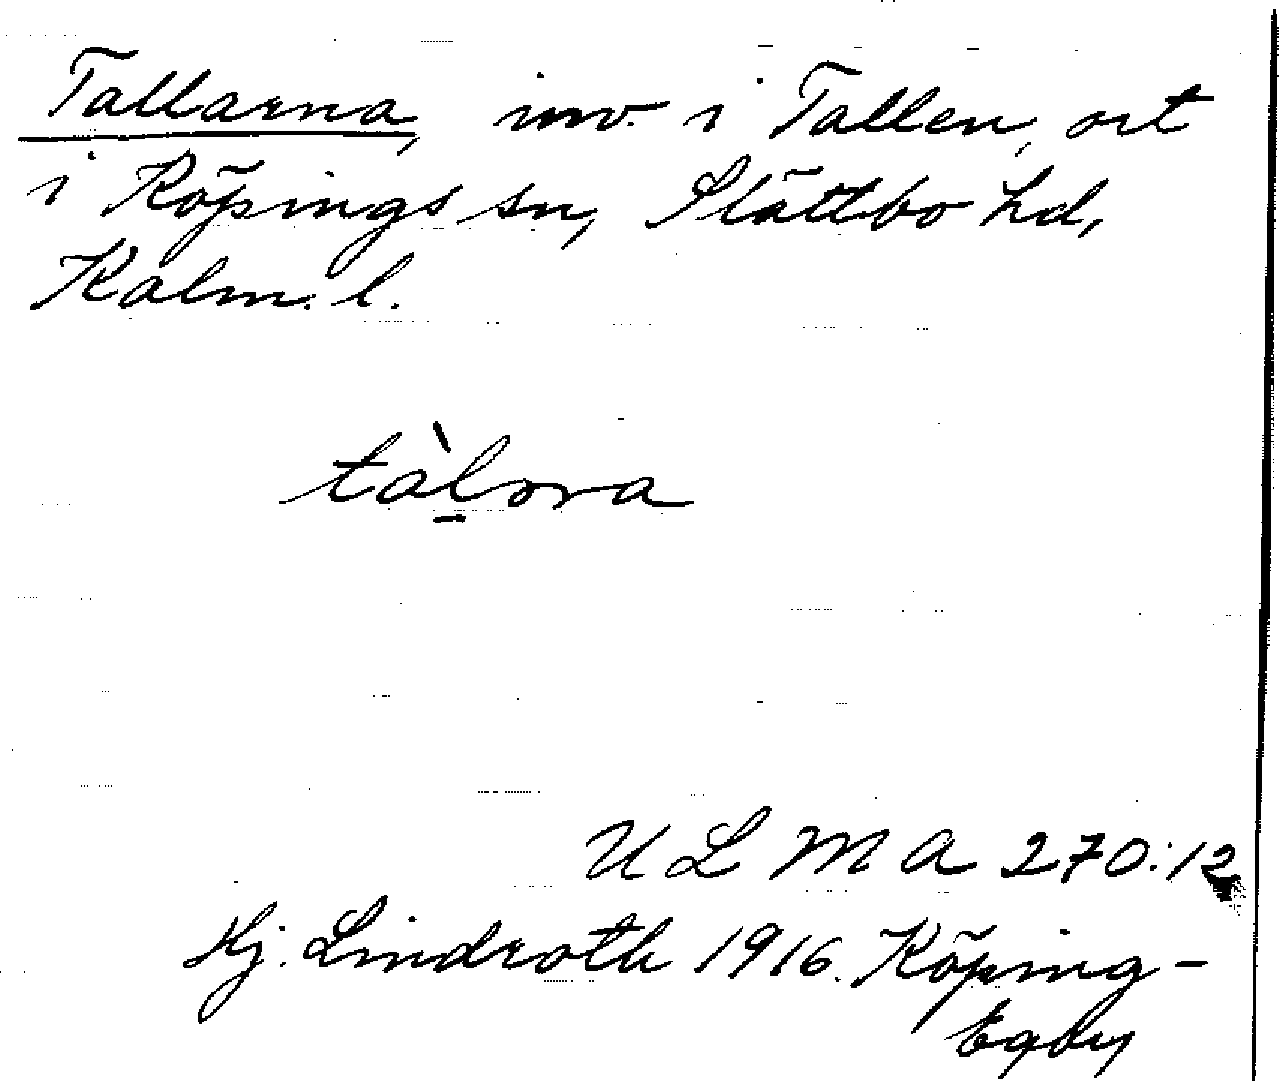 Tallarna, inv. i Tallen, ort
i Köpings sn, Slättbo hd,
Kalm. l.
tàl̠ora
U L M A 270:12
Hj. Lindroth 1916. Köping-
Egby